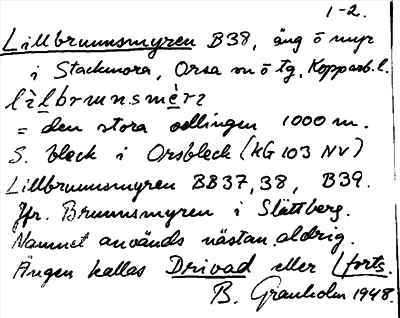 1-2.
Lillbrunnsmyren B38, äng o myr
i Stackmora, Orsa sn o tg, Kopparb. l.
lìlbrunsmèrı
= den stora odlingen 1000 m.
S. bleck i Orsbleck (KG 103 NV)
Lillbrunnsmyren BB37, 38, B39.
Jfr. Brunnsmyren i Slättberg.
Namnet används nästan aldrig.
Ängen kallas Drivad eller L forts.
B. Granholm 1948.